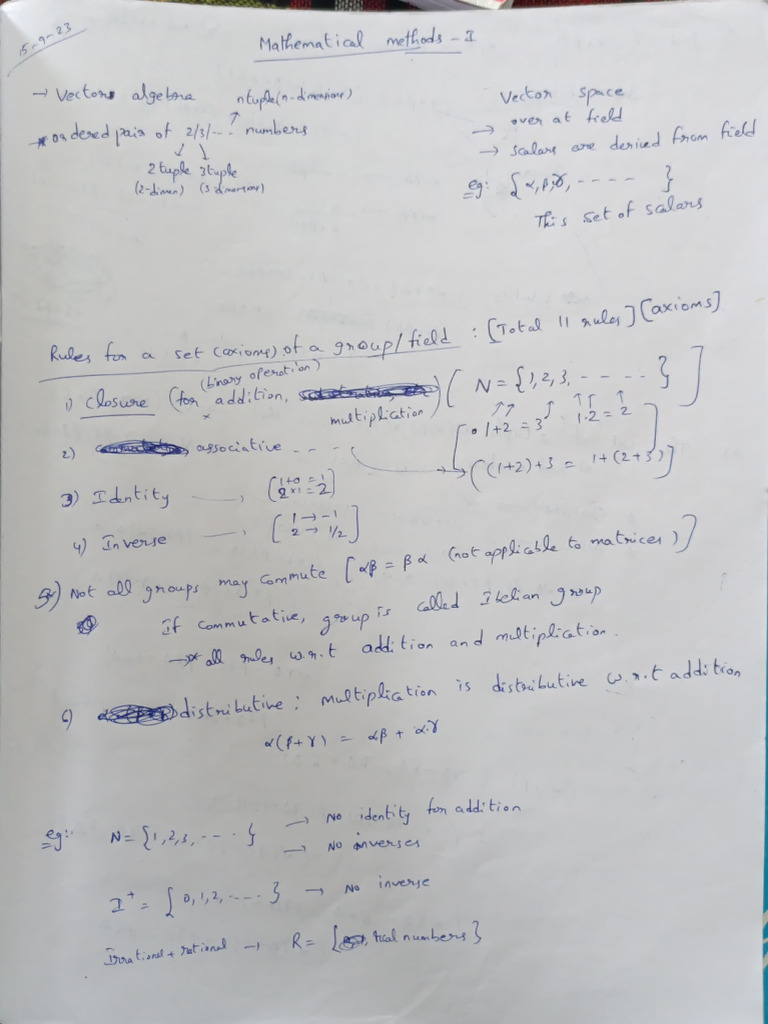 15-9-23
Mathematical methods - I
→ Vector algebra ntuple(n-dimensions)
* ordered pair of 2/3/... numbers
2 tuple 3tuple
(2-dimen) (3 dimension)
Vector space
→ over at field
→ scalars are derived from field
eg: {α, β, γ, ---- }
This set of scalars
Rules for a set (axioms) of a group/field : [Total 11 rules] [axioms]
(binary operation)
1) closure (for addition, multiplication) ( N = {1,2,3, ----- } ]
×
[ • 1+2 = 3 1·2 = 2 ]
2) associative ---- → ((1+2)+3 = 1+(2+3)]
3) Identity —— , [1+0 = 1
2×1 = 2]
4) Inverse —— , [1 → -1
2 → 1/2]
5) Not all groups may commute [αβ = βα (not applicable to matrices)]
If commutative, group is called Ibelian group
→* all rules w.r.t addition and multiplication.
6) distributive : multiplication is distributive w.r.t addition
α(β+γ) = αβ + α·γ
eg:- N = {1,2,3, ---- } → No identity for addition
→ No inverses
I⁺ = { 0,1,2, ---- } → No inverse
Irrational + rational → R = { , real numbers}